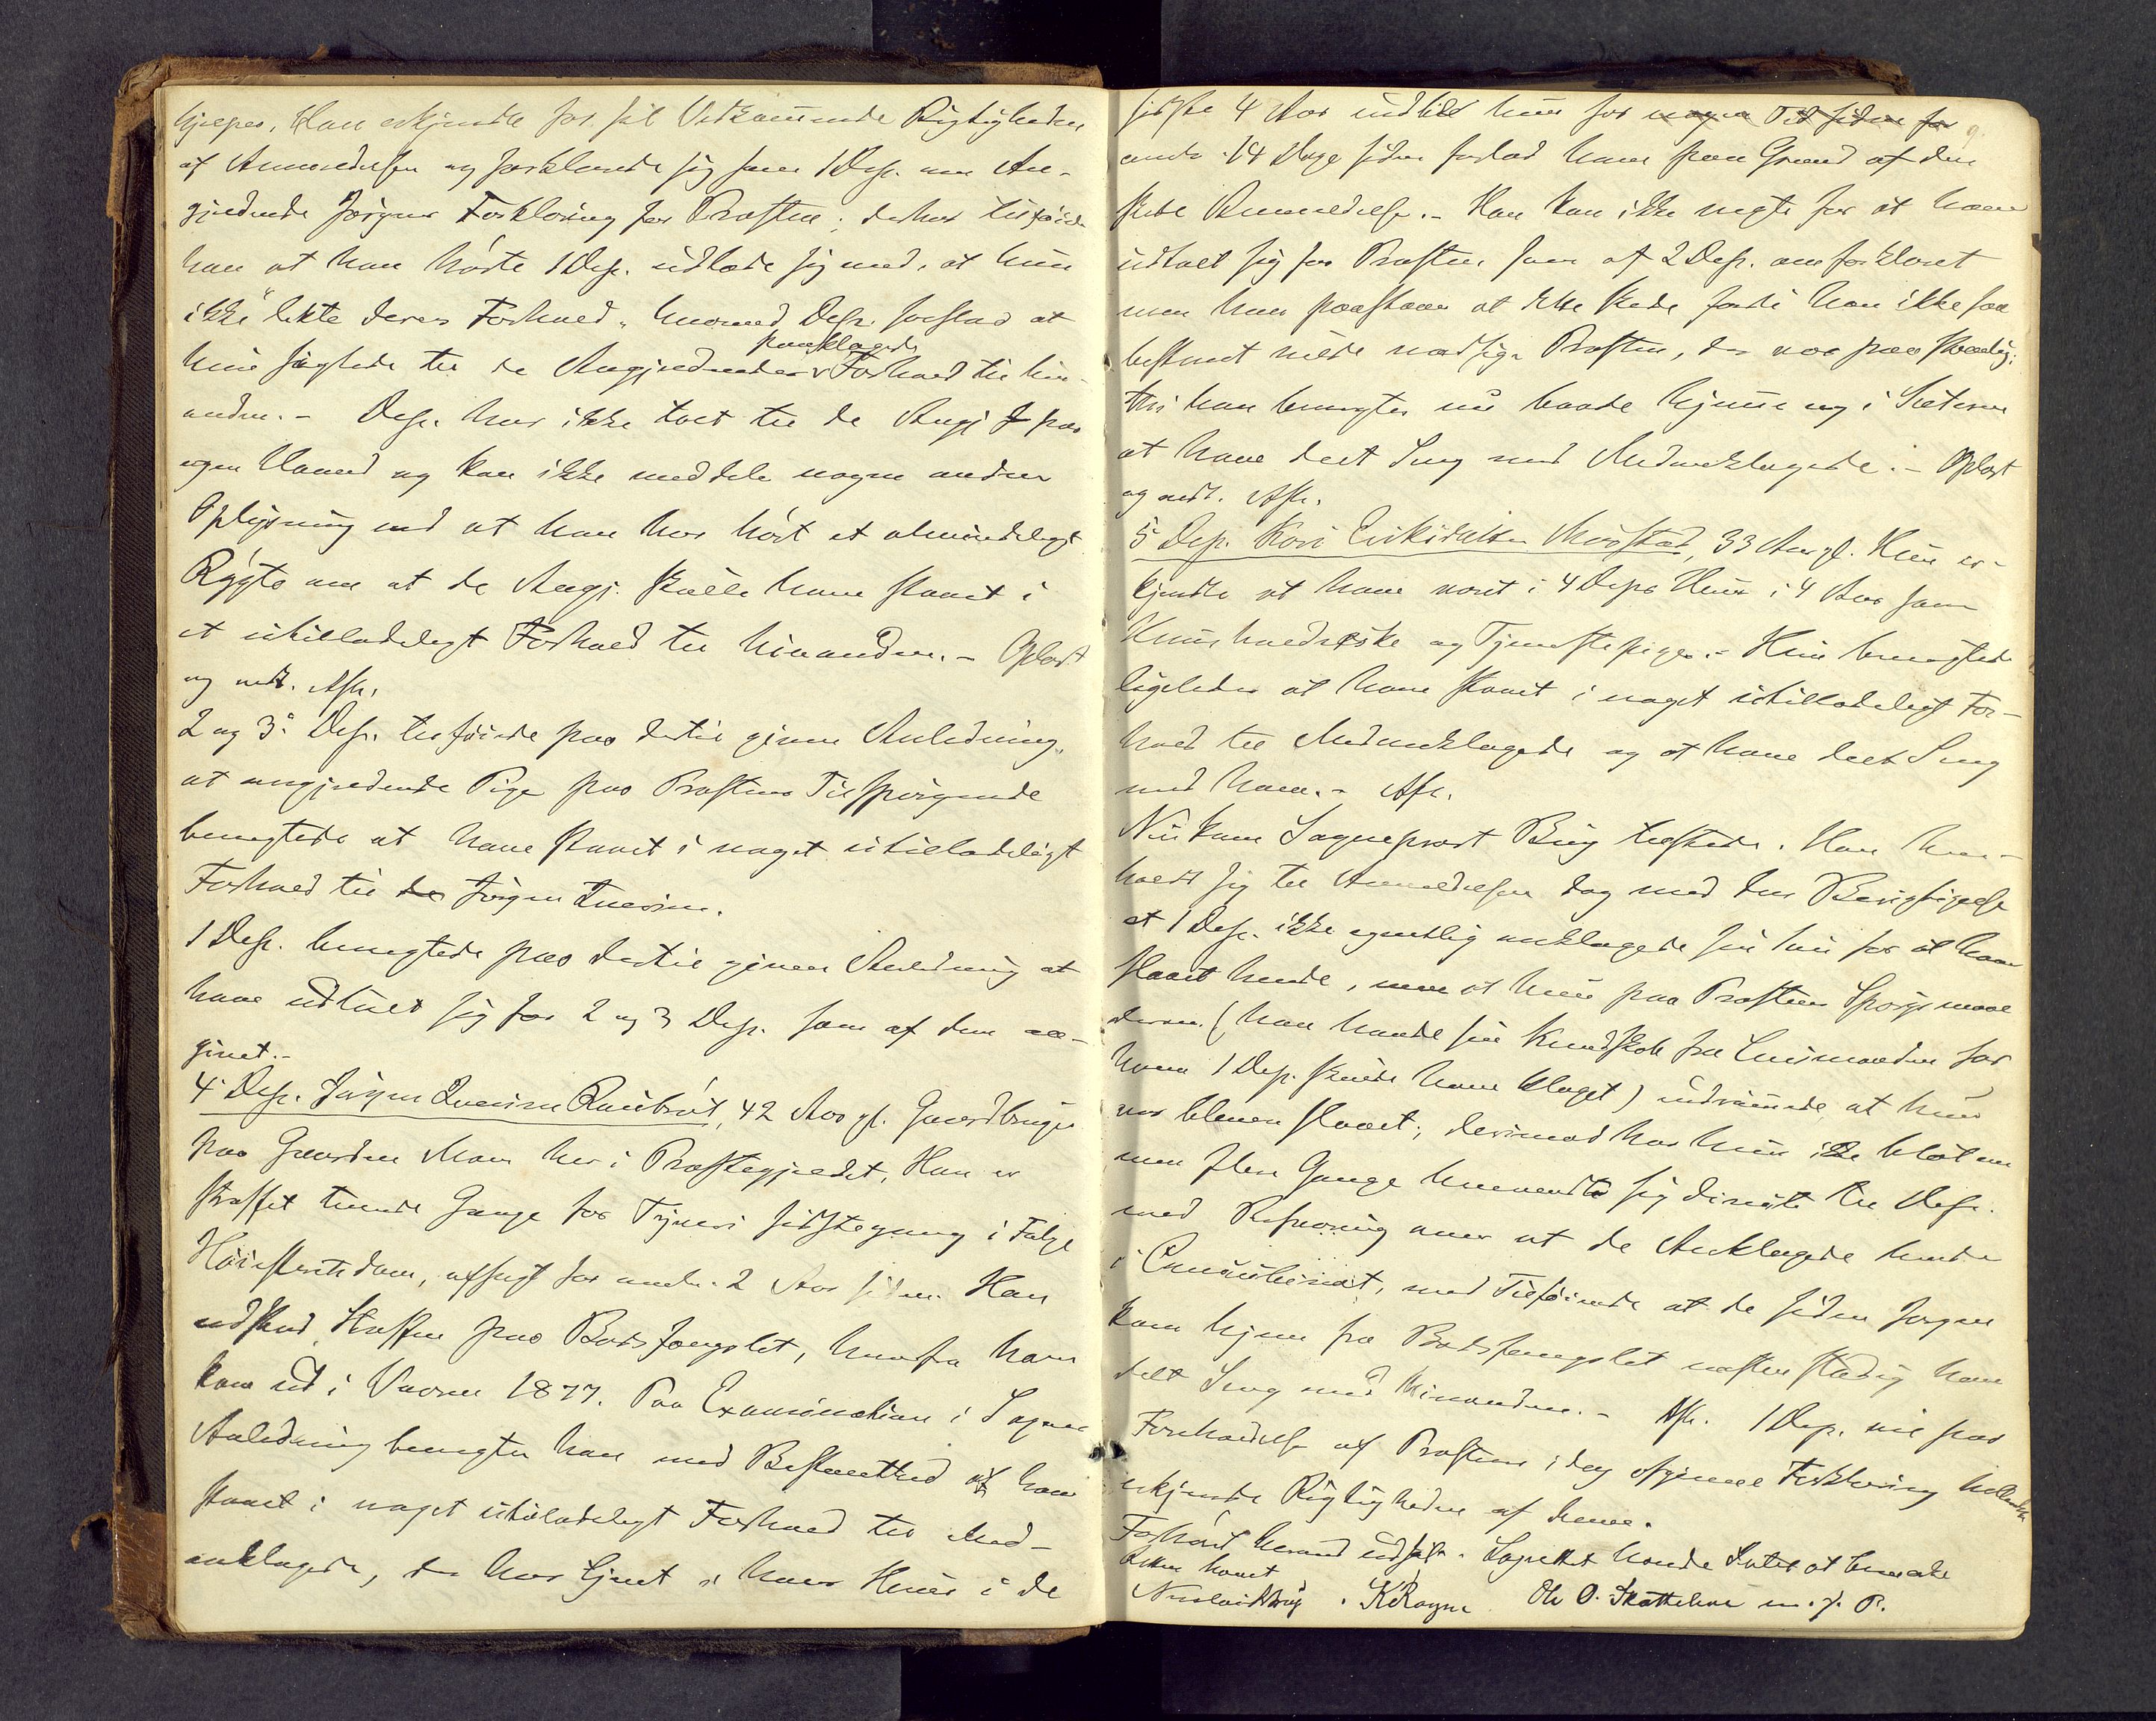 hjelper. Han erkjendte for sit Vedkommende Rigtigheden
af Anmeldelsen og forklarede sig som 1 Dep. om An-
gjeldende Jørgens Forklaring for Prosten; derhos tilføide
han at han hørte 1 Dep. udlode sig med, at hun
ikke "likte deres Forhold", hvormed Dep. forstod at
paaklagede
hun sigtede til de Angjeldendes Forhold til hin-
anden. - Dep. har ikke talt til de Angj paa
egen Haand og kan ikke meddele nogen anden
Oplysning end at han har hørt et almindeligt
Rygte om at de Angj. skulle have staaet i
et utilladeligt Forhold til hinanden. - Oplæst
og vedt. Aftr.
2 og 3 Dep. tilføiede paa dertil given Anledning,
at angjeldende Pige paa Prostens Tilspørgende
benegtede at have staaet i noget utilladeligt
Forhold til Jørgen Iversen.
1 Dep. benegtede paa dertil given Anledning at
have udtalt sig for 2 og 3 Dep. som af dem an-
givet. -
4 Dep. Jørgen Iversen, 42 Aar gl. Gaardbruger
paa Gaarden Moen her i Præstegjeldet. Han er
straffet tvende Gange for Tyveri sidstegang i Følge
Høiesteretsdom, afsagt for omtr. 2 Aar siden. Han
udstod Straffen paa Bodsfængslet, hvorfra han
kom ud i Vaaren 1877. Paa Examination i Sagens
Anledning benegter han med Bestemthed at have
staaet i noget utilladeligt Forhold til Med-
anklagede, der har tjent i hans Huus i de
sidste 4 Aar indtil hun for nogen Tid siden for
omtr. 14 Dage siden forlod ham paa Grund af den
skete Anmeldelse. - Han kan ikke negte for at have
udtalt sig for Prosten som af 2 Dep. omforklaret
men han paastaar at dette skede fordi han ikke saa
bestemt vilde modsige Prosten, der var paa
thi han benegter nu baade hjemme og i Sæteren
at have deelt Seng med Medanklagede. - Oplæst
og vedt. Aftr.
5 Dep. Kari Eriksdatter, 33 Aar gl. Hun er-
kjendte at have været i 4 Deps Huus i 4 Aar som
Huusholderske og Tjenestepige. - Hun benegtede
ligeledes at have staaet i noget utilladeligt For-
hold til Medanklagede og at have deelt Seng
med ham. - Aftr.
Nu kom Sogneprest Bing tilstede. Han hen-
holdt sig til Anmeldelsen dog med den Berigtigelse
at 1 Dep. ikke egentlig anklagede sin for at have
slaaet hende, men at hun paa Prostens Spørgsmaal
derom (han havde sin Kundskab fra Lensmanden for
hvem 1 Dep. skulde have klaget) indrømmede at hun
var bleven slaaet; derimod har hun ikke blot en
men flere Gange henvendt sig direkte til Dep.
med Besværing over at de Anklagede levede
i Concubinat, med Tilføiende at de siden Jørgen
kom hjem fra Bodsfængslet næsten stadig have
delt Seng med hinanden. - Aftr. 1 Dep. vil paa
Foreholdelse af Prostens i dag afgivne Forklaring
erkjende Rigtigheden af denne.
Forhøret herved udsat. Lagrettet havde Intet at bemærke
Retten hævet
K Rogne Ole O. m. p. P.